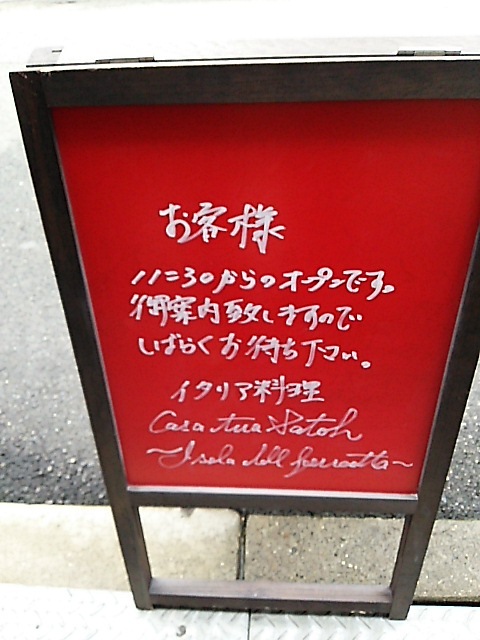 お客様
11:30からのオープンです。
御案内致しますので
しばらくお待ち下さい。
イタリア料理
Casa tua Satoh
~Isola dell